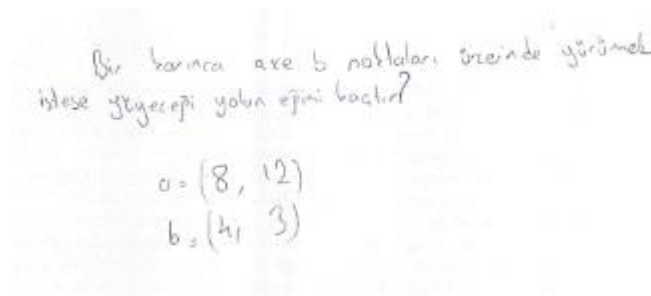 Bir karınca a ve b noktaları üzerinde yürümek
istese yürüyeceği yolun eğimi kaçtır?
a = (8, 12)
b = (4, 3)